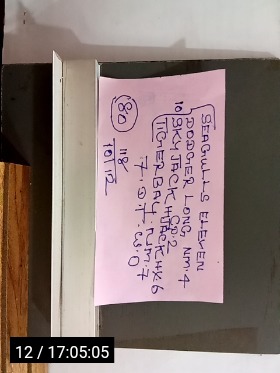 SEAGULLS ELEVEN
DODGER LONG NM.4
10 SKYJACK HJ CD.2
TIGERBAY JACK HX.6
7.0.T.N.M.7
80
118
10/12
12 / 17:05:05